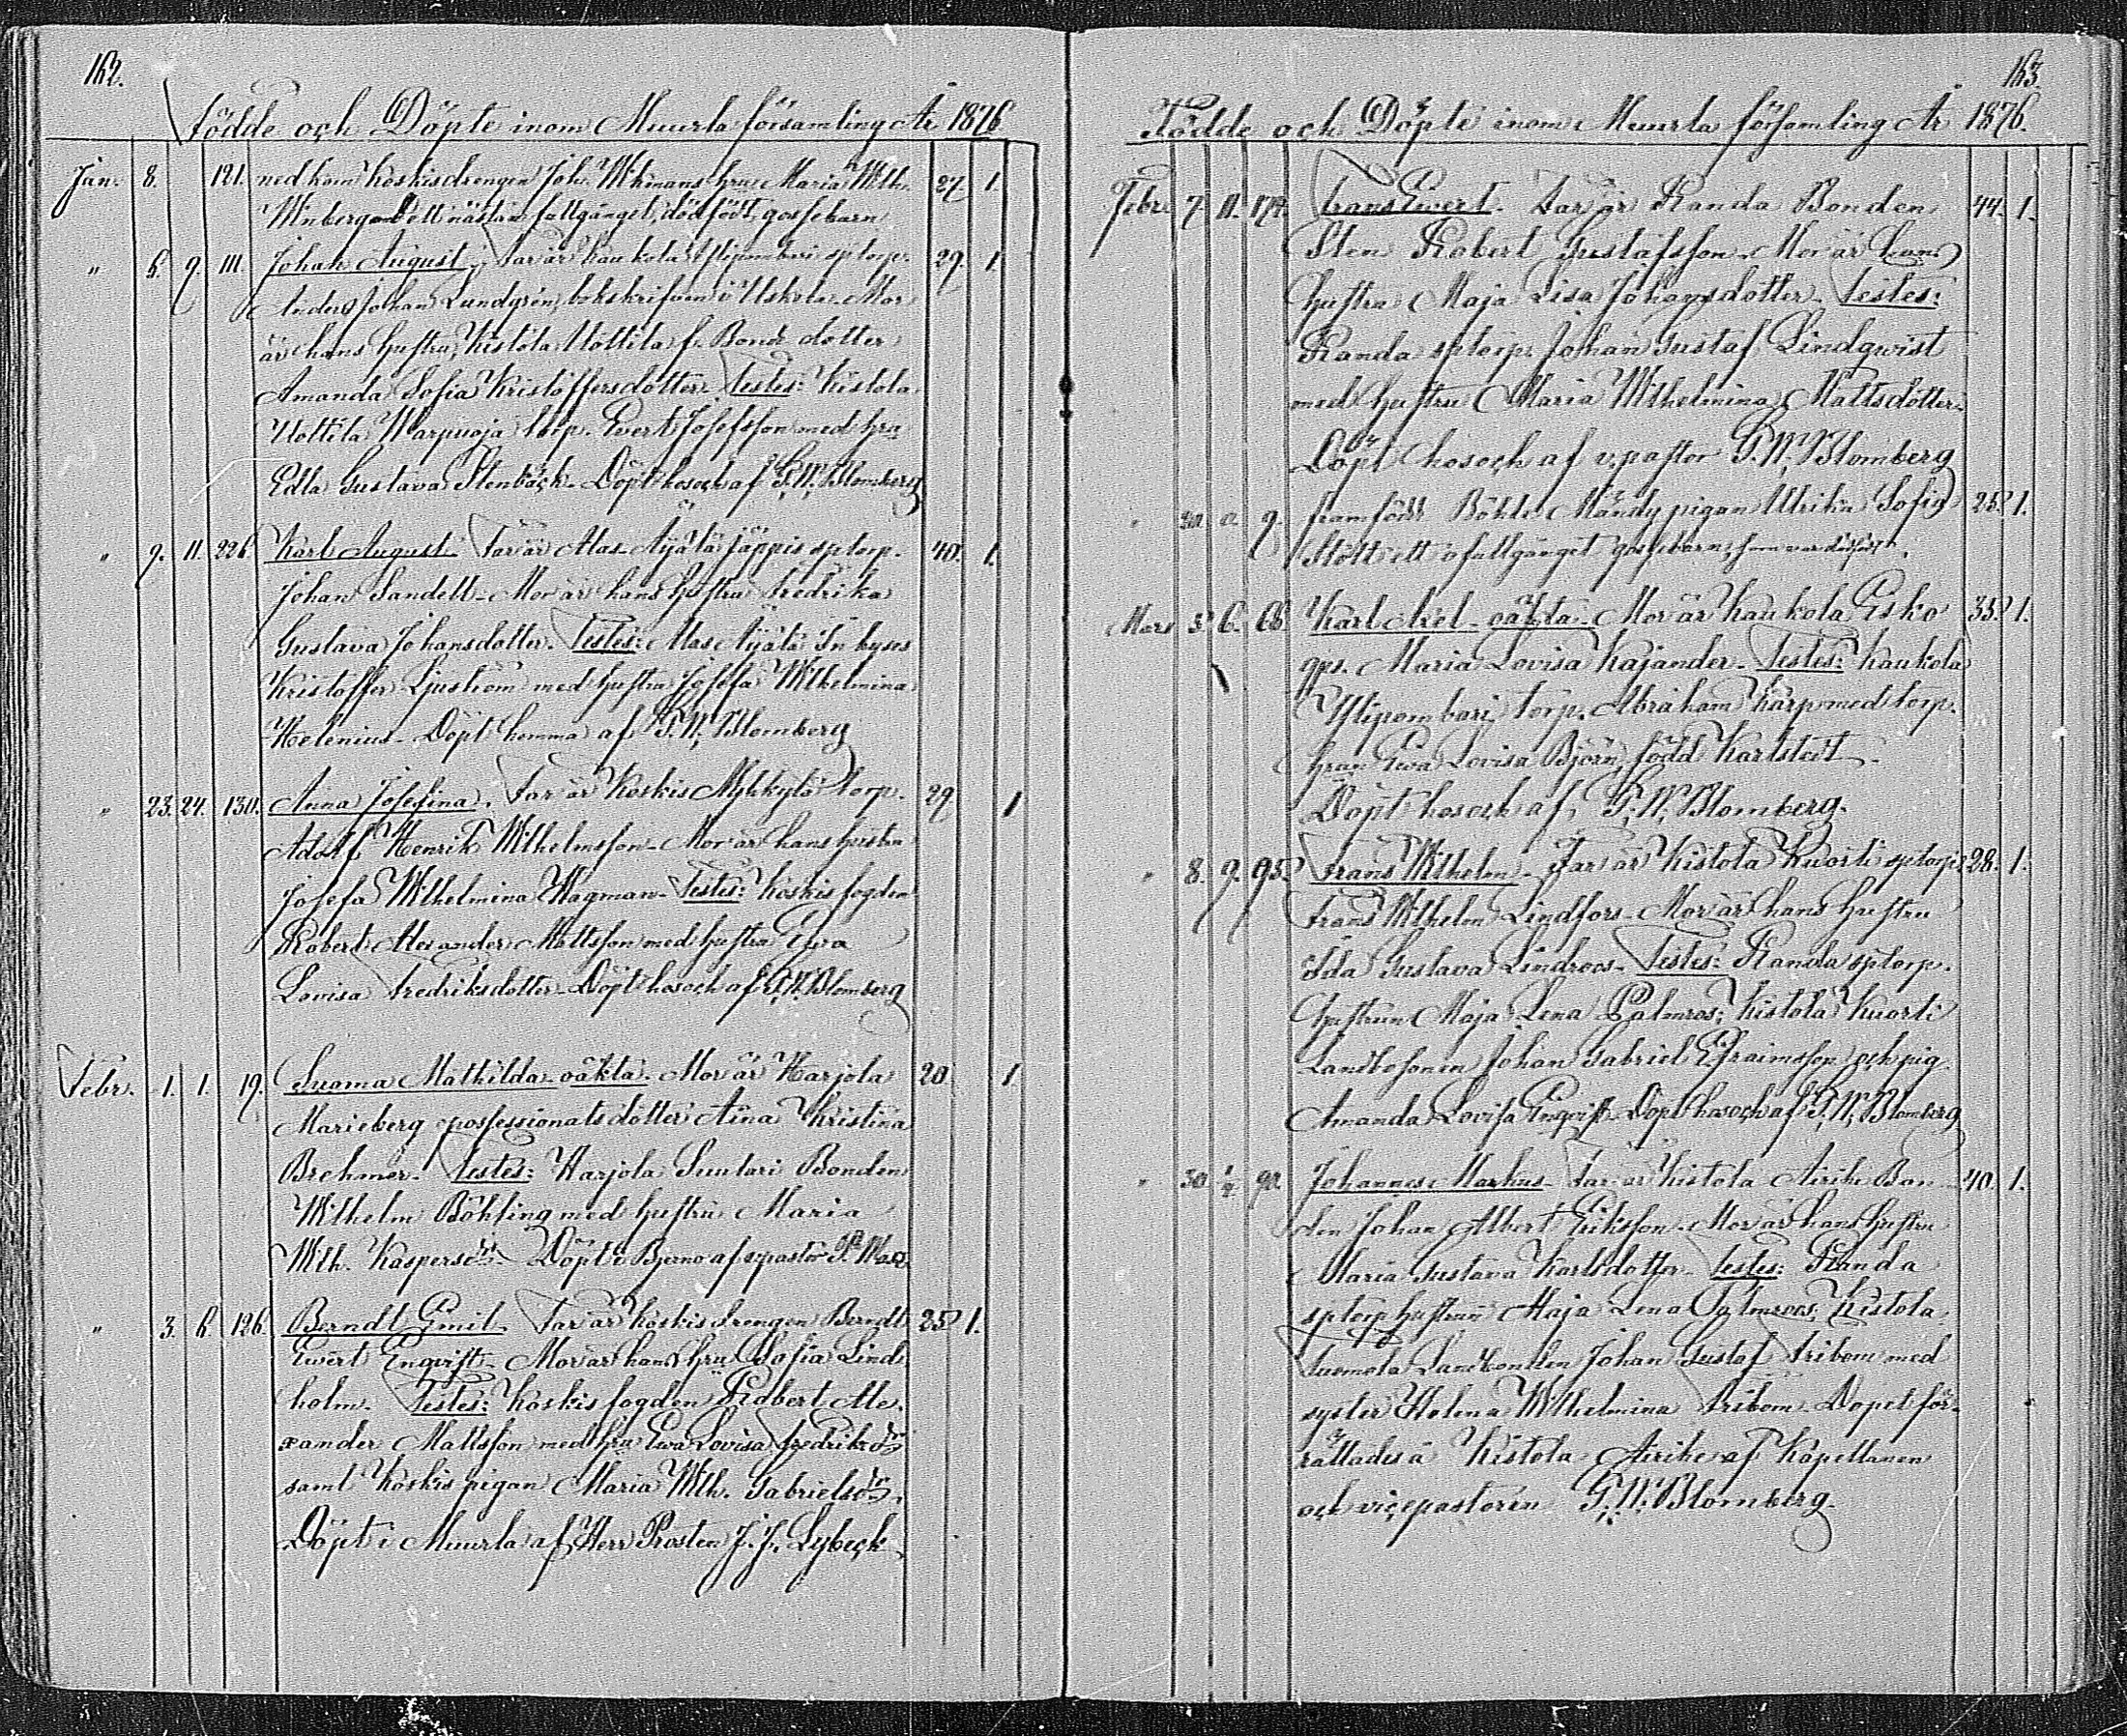 162.
Födde och Döpte inom Muurla församling År 1876
Jan. 8. 121. nedkom Koskis drengen Joh. Wikmans hru Maria Wilh. 27. 1.
Winberg med ett nästan fullgånget, dödfödt, gossebarn
" 6. 9. 111. Johan August. Far är Kaukola Ylipombari sptorp. 29. 1.
Anders Johan Lundgrén, bokskrifven i Uskela. Mor
är hans hustru, Kistola Uottila f. Bonde dotter
Amanda Sofia Kristoffersdotter. Testes: Kistola
Uottila Warpuoja torp. Evert Josefsson med hru
Edla Gustava Stenbäck. Döpt hos och af G. W. Blomberg
" 9. 11. 226. Karl August. Far är Alas Äijälä Jäppis sptorp. 40. 1.
Johan Sandell. Mor är hans hustru Fredrika
Gustava Johansdotter. Testes: Alas Äijälä Inhyses
Kristoffer Ljuström med hustru Josefa Wilhelmina
Helenius. Döpt hemma af G. W. Blomberg
" 23. 24. 130. Anna Josefina. Far är Koskis Mykkylä torp. 29 1
Adolf Henrik Wilhelmsson. Mor är hans hustru
Josefa Wilhelmina Wagman. Testes: Koskis fogden
Robert Alexander Mattsson med hustru Ewa
Lovisa Fredriksdotter. Döpt hos och af G. W. Blomberg
Febr. 1. 1. 19. Suoma Mathilda oäkta. Mor är Harjola 20 1
Marieberg possessionats dotter Aina Kristina
Brehmer. Testes: Harjola Suutari Bonden
Wilhelm Böhling med hustru Maria
Wilh. Kaspersdr. Döpt i Bjerno af v. pastor
" 3. 6. 126. Berndt Emil. Far är Koskis drengen Berndt 25 1.
Evert Enqvist. Mor är hans hru Sofia Lind
holm. Testes: Koskis fogden Robert Ale-
xander Mattsson med hru Ewa Lovisa Fredriksdr
samt Koskis pigan Maria Wilh. Gabrielsdr.
Döpt i Muurla af Herr Prosten J. J. Lybeck
163.
Födde och Döpte inom Muurla församling År 1876.
Febr 7. 11. Frans Evert. Far är Randa Bonden 44. 1.
Sten Robert Gustafsson. Mor är hans
hustru Maja Lisa Johansdotter. Testes:
Randa sptorp. Johan Gustaf Lindqwist
med hustru Maria Wilhelmina Mattsdotter.
Döpt hos och af v. pastor G. W. Blomberg
" framfödde Böhle Mändy pigan Ulrika Sofia 25. 1.
Slött ett ofullgånget gossebarn, som var dödfödt.
Mars 5. 6. 68 Karl Axel oäkta. Mor är Kaukola Esko 35. 1.
qps. Maria Lovisa Kajander. Testes: Kaukola
Ylipombari torp. Abraham Karp med torp.
hrun Ewa Lovisa Björn, född Karlstedt.
Döpt hos och af G. W. Blomberg.
" 8. 9. 95. Frans Wilhelm. Far är Kistola Kuorti sptorp. 28. 1.
Frans Wilhelm Lindfors. Mor är hans hustru
Ida Gustava Lindroos. Testes: Randa sptorp.
hustrun Maja Lena Palmros; Kistola Kuorti
Landbosonen Johan Gabriel Efraimsson och pig.
Amanda Lovisa Enqvist. Döpt hos och af G. W. Blomberg
" 30. 1/4. 90. Johannes Markus. Far är Kistola Airike Bon- 40. 1.
den Johan Albert Eriksson. Mor är hans hustru
Maria Gustava Karlsdotter. Testes: Randa
sptorp hustrun Maja Lena Palmroos; Kistola
Tuomola Landbonden Johan Gustaf Fribom med
syster Helena Wilhelmina Fribom. Dopet för-
rättades å Kistola Airike af Kapellanen
och vicepastoren G. W. Blomberg.